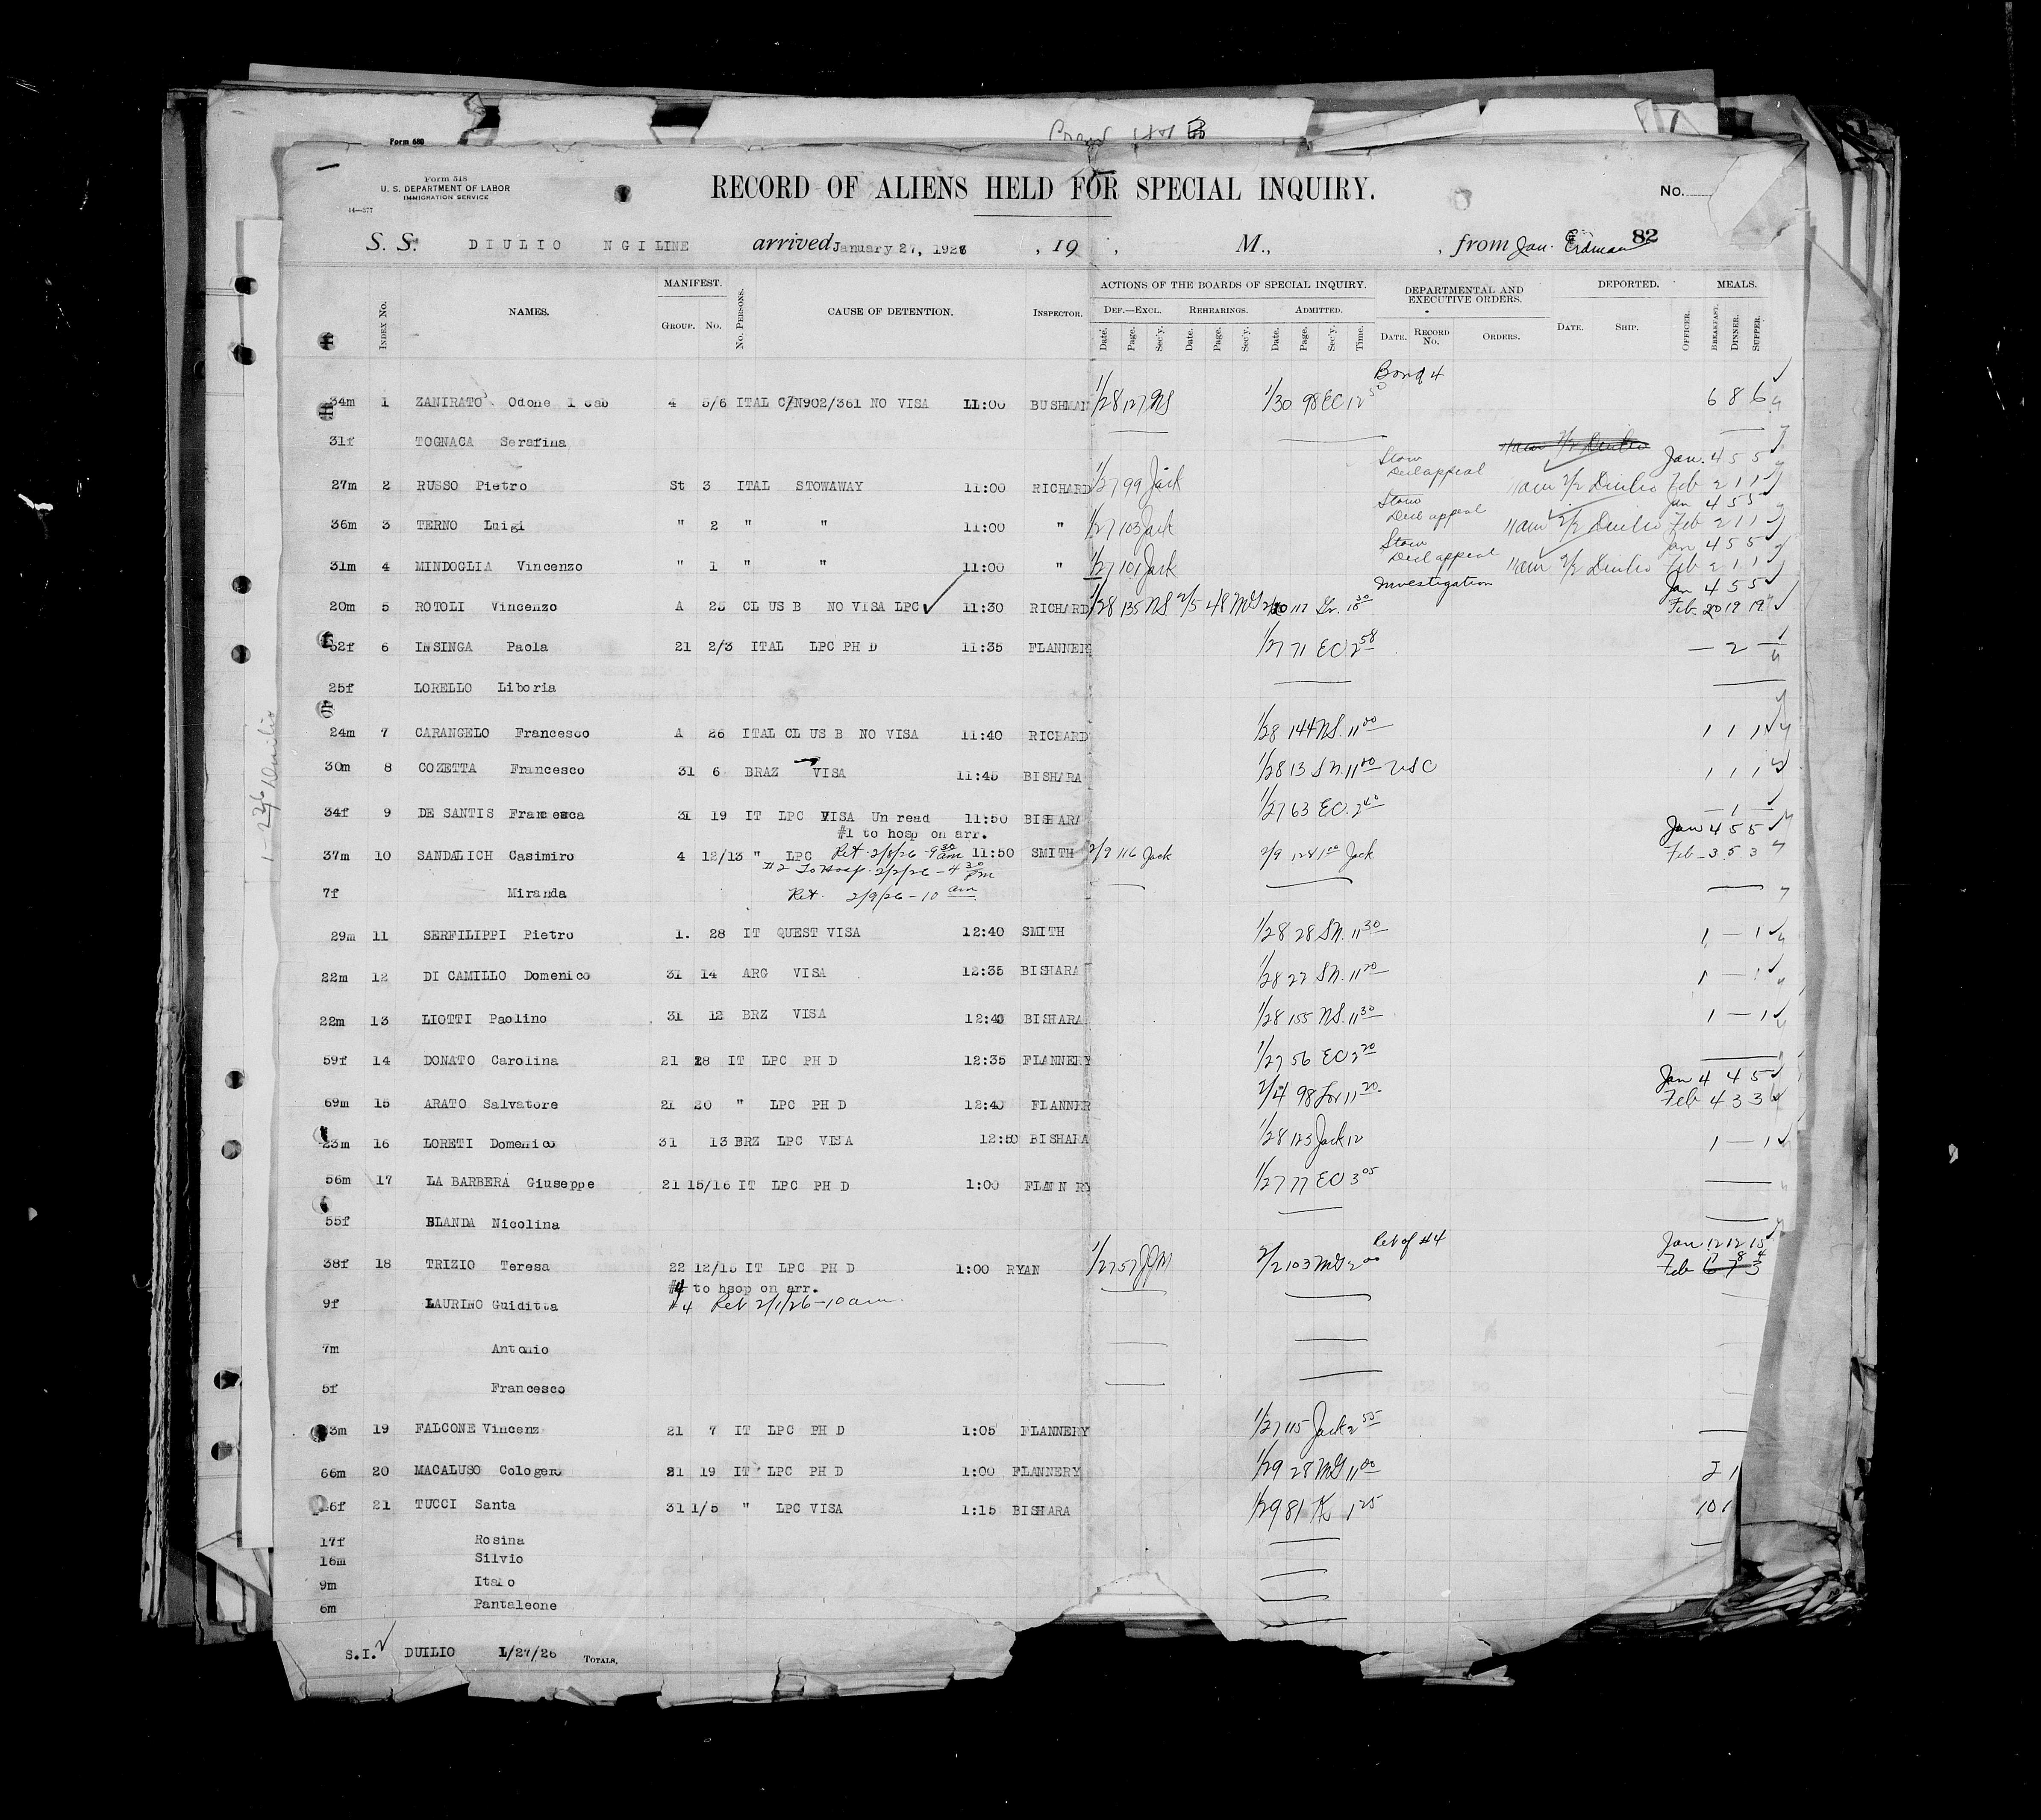 Form 680
Form 518
U. S. DEPARTMENT OF LABOR
IMMIGRATION SERVICE
14—577
RECORD OF ALIENS HELD FOR SPECIAL INQUIRY.
No.
S. S. DIULIO NGILINE arrived January 27, 1926 , 19 , M., , from Jan. Erdman 82
INDEX No. NAMES. MANIFEST. GROUP. No. No. PERSONS. CAUSE OF DETENTION. INSPECTOR. ACTIONS OF THE BOARDS OF SPECIAL INQUIRY. DEPARTMENTAL AND EXECUTIVE ORDERS. DEPORTED. MEALS.
DEF.—EXCL. REHEARINGS. ADMITTED.
Date. Page. Sec'y. Date. Page. Sec'y. Date. Page. Sec'y. Time. DATE. RECORD No. ORDERS. DATE. SHIP. OFFICER. BREAKFAST. DINNER. SUPPER.
Bond 4
34m 1 ZANIRATO Odone 1 cab 4 5/6 ITAL C/N902/361 NO VISA 11:00 BUSHMAN 1/28 127 NS 1/30 98 EC 12 50 6 8 6
31f TOGNACA Serafina
Stow Jan. 4 5 5
27m 2 RUSSO Pietro St 3 ITAL STOWAWAY 11:00 RICHARD 1/27 99 Jack Decl appeal 11am 2/2 Diulio Feb 2 1 1
Stow Jan 4 5 5
36m 3 TERNO Luigi " 2 " " 11:00 " 1/27 103 Jack Decl appeal 11am 2/2 Diulio Feb 2 1 1
Stow Jan 4 5 5
31m 4 MINDOGLIA Vincenzo " 1 " " 11:00 " 1/27 101 Jack Decl appeal 11am 2/2 Diulio Feb 2 1 1
Investigation Jan 4 5 5
20m 5 ROTOLI Vincenzo A 25 CL US B NO VISA LPC 11:30 RICHARD 1/28 135 NS 2/5 48 MG 2/20 117 Gr. 10 30 Feb. 20 19 19
52f 6 INSINGA Paola 21 2/3 ITAL LPC PH D 11:35 FLANNER 1/27 71 EC 2 58 — 2 —
25f LORELLO Liboria
24m 7 CARANGELO Francesco A 26 ITAL CL US B NO VISA 11:40 RICHARD 1/28 144 NS. 11 00 1 1 1
30m 8 COZETTA Francesco 31 6 BRAZ VISA 11:45 BISHARA 1/28 13 SN. 11 00 USC 1 1 1
34f 9 DE SANTIS Francesca 31 19 IT LPC VISA Un read 11:50 BISHARA 1/27 63 EC. 2 40 — 1 —
#1 to hosp on arr. Jan 4 5 5
37m 10 SANDALICH Casimiro 4 12/13 " LPC Ret. 2/8/26 - 9 30 am 11:50 SMITH 2/9 116 Jack 2/9 124 1 00 Jack Feb - 3 5 3
#2 To Hosp. 2/2/26 - 4 30 pm
7f Miranda Ret. 2/9/26 - 10 am
29m 11 SERFILIPPI Pietro 1. 28 IT QUEST VISA 12:40 SMITH 1/28 28 SN. 11 30 1 — 1
22m 12 DI CAMILLO Domenico 31 14 ARG VISA 12:35 BISHARA 1/28 22 SN. 11 20 1 — 1
22m 13 LIOTTI Paolino 31 12 BRZ VISA 12:40 BISHARA 1/28 155 NS. 11 30 1 — 1
59f 14 DONATO Carolina 21 18 IT LPC PH D 12:35 FLANNERY 1/27 56 EC 2 20
Jan 4 4 5
69m 15 ARATO Salvatore 21 20 " LPC PH D 12:40 FLANNER 2/4 98 11 20 Feb 4 3 3
23m 16 LORETI Domenico 31 13 BRZ LPC VISA 12:50 BISHARA 1/28 123 Jack 12 1 — 1
56m 17 LA BARBERA Giuseppe 21 15/16 IT LPC PH D 1:00 FLANN RY 1/27 77 EC 3 05
55f BLANDA Nicolina
Ret of #4 Jan 12 12 15
38f 18 TRIZIO Teresa 22 12/15 IT LPC PH D 1:00 RYAN 1/27 57 JJM 2/2 103 MG 2 00 Feb 6 7 3 7 8 4
#4 to hsop on arr.
9f LAURINO Guiditta #4 Ret 2/1/26 - 10 am.
7m Antonio
5f Francesco
3m 19 FALCONE Vincenz 21 7 IT LPC PH D 1:05 FLANNERY 1/27 115 Jack 2 55
66m 20 MACALUSO Cologero 21 19 IT LPC PH D 1:00 FLANNERY 1/29 28 MG 11 00 2 1
6f 21 TUCCI Santa 31 1/5 " LPC VISA 1:15 BISHARA 1/29 81 K 1 25 10 1
17f Rosina
16m Silvio
9m Italo
6m Pantaleone
S.I. DUILIO 1/27/26 TOTALS.
1-27/26 Duilio